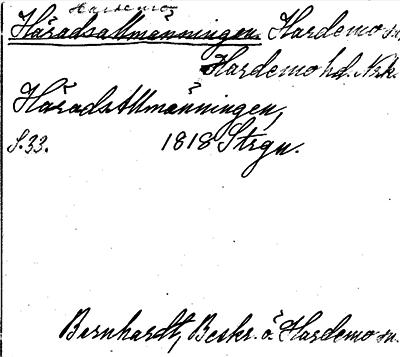 Hardemo
Häradsallmänningen. Hardemo sn.
Hardemo hd. Nrk.
Häradsallmänningen,
S. 33. 1818 Strgn.
Bernhardt, Beskr. ö. Hardemo sn.